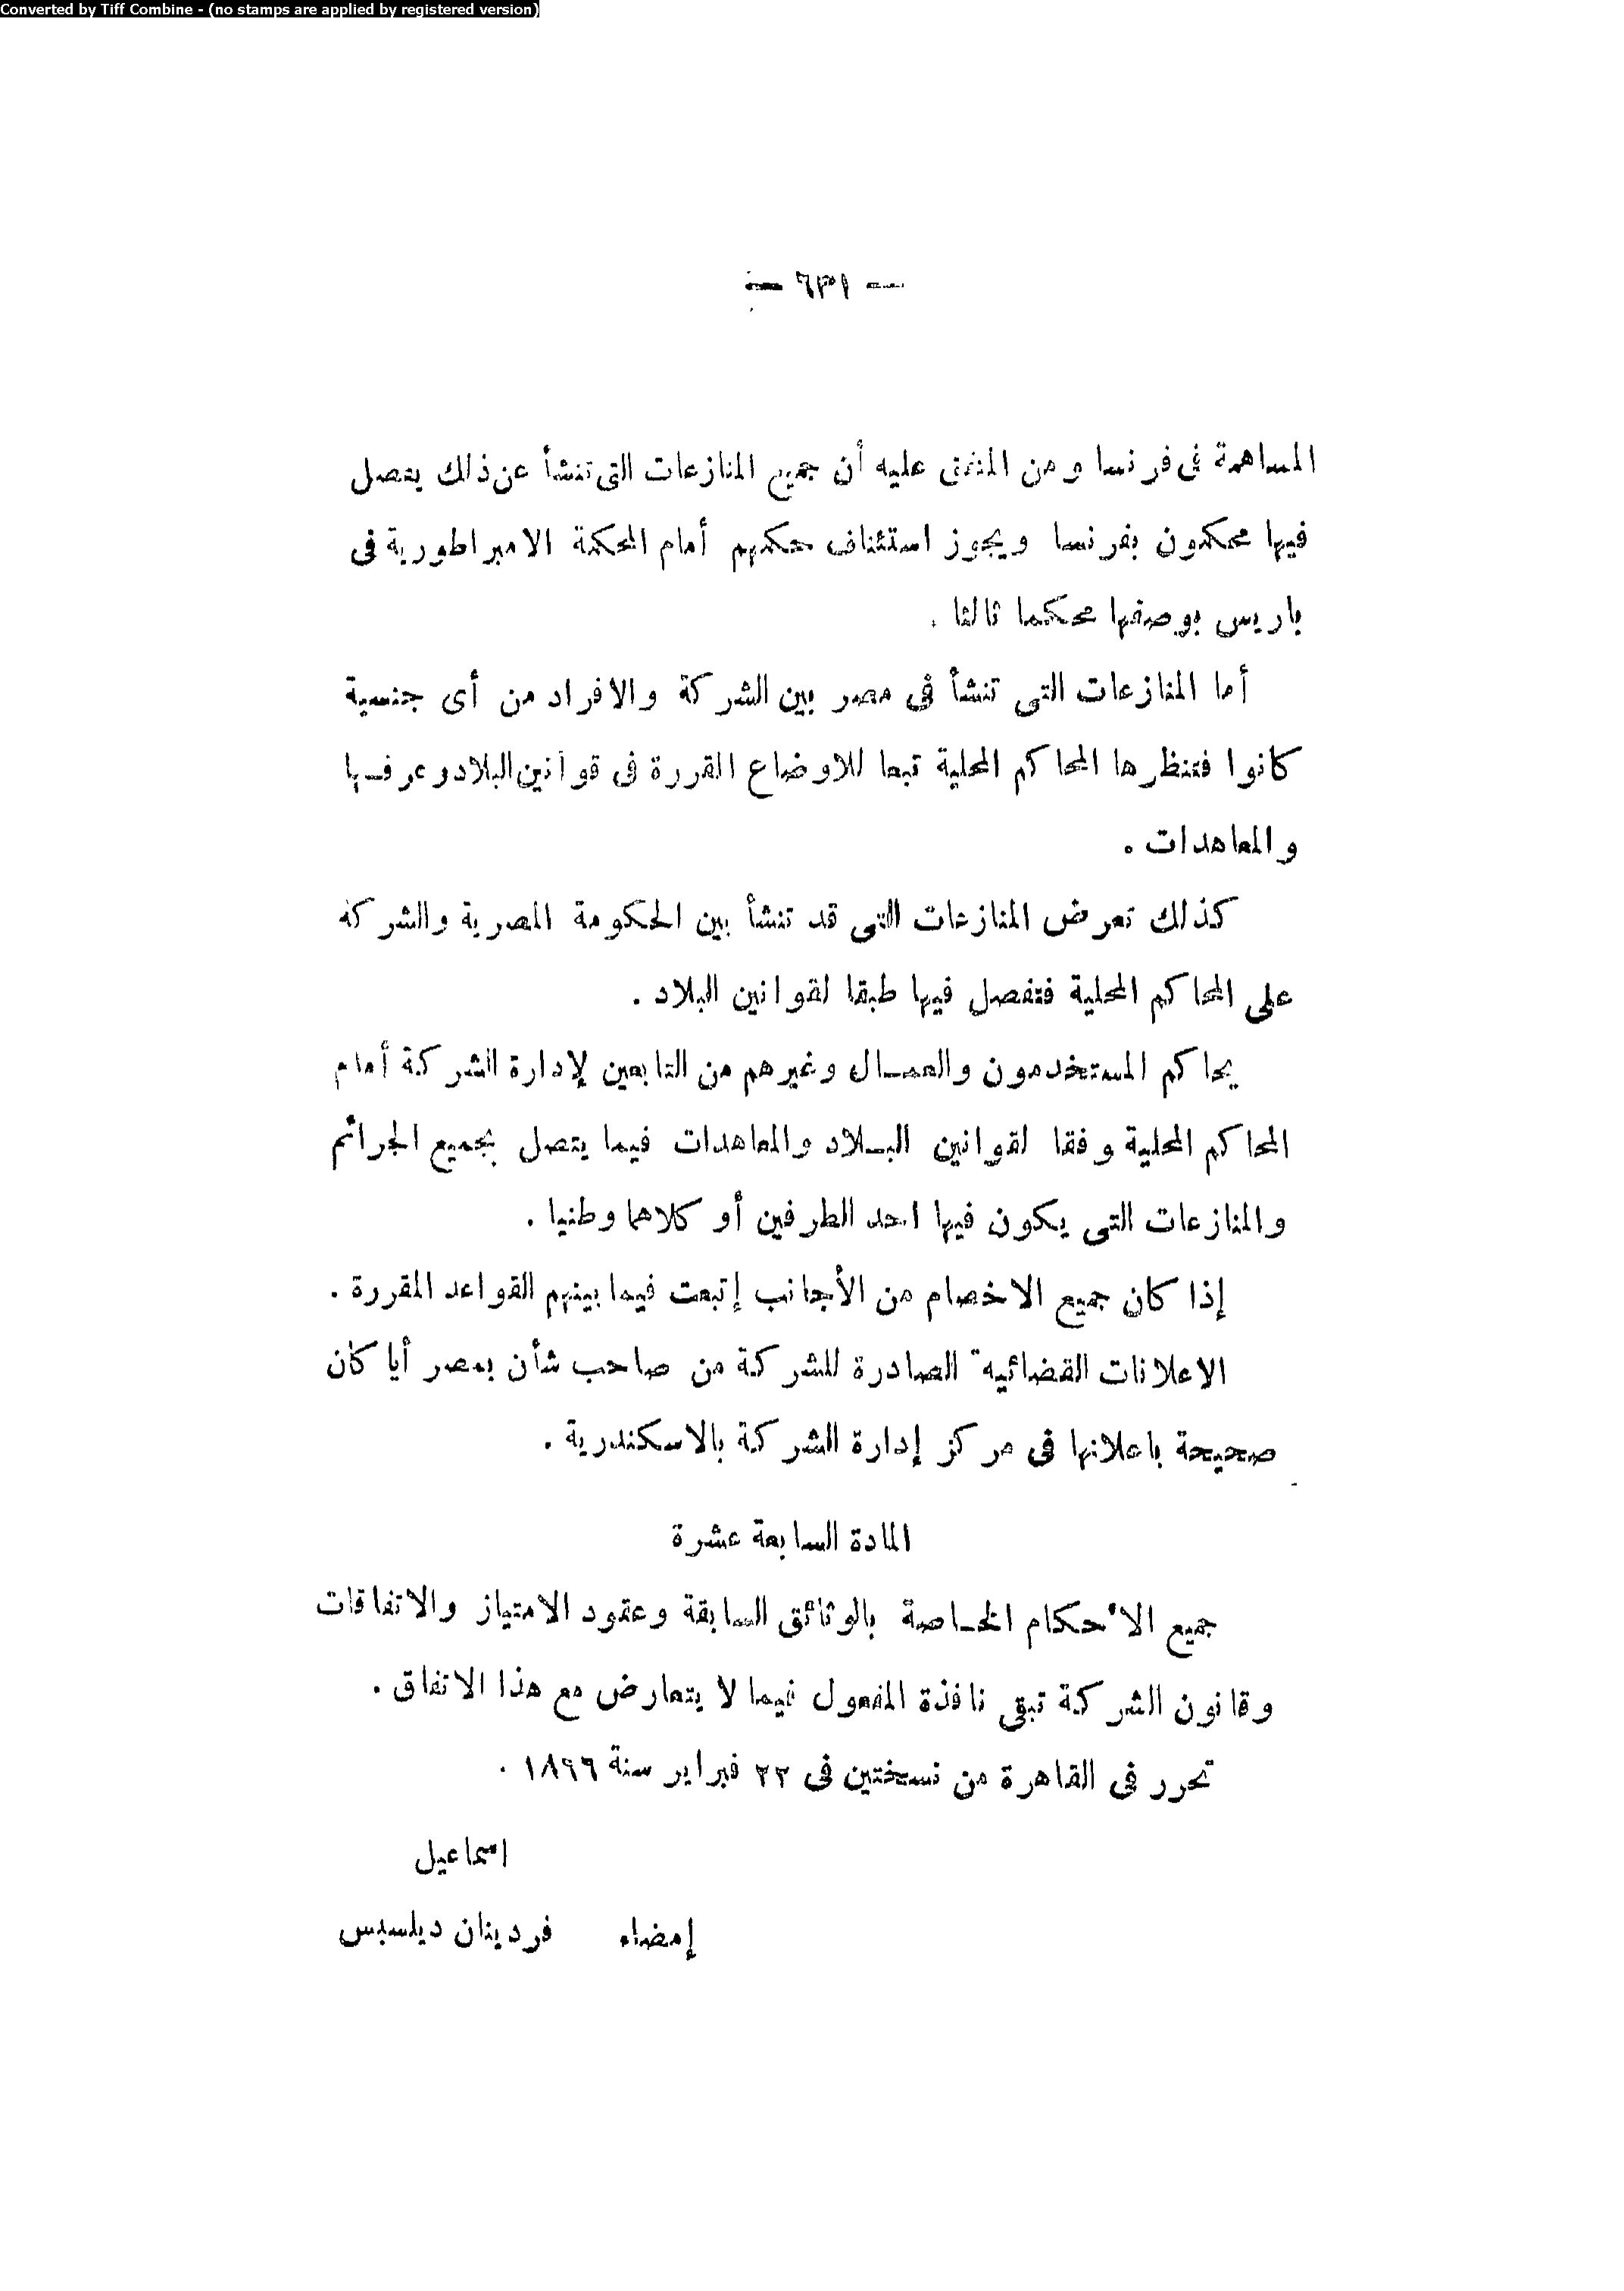 Converted by Tiff Combine - (no stamps are applied by registered version)
— ٦٣١ —
المساهمة فى فرنسا ومن المتفق عليه أن جميع المنازعات التى تنشأ عن ذلك يفصل
فيها محكمون بفرنسا ويجوز استئناف حكمهم أمام المحكمة الامبراطورية فى
باريس بوصفها محكما ثالثا .
أما المنازعات التى تنشأ فى مصر بين الشركة والافراد من أى جنسية
كانوا فتنظرها المحاكم المحلية تبعا للاوضاع المقررة فى قوانين البلاد وعرفـها
والمعاهدات .
كذلك تعرض المنازعات التى قد تنشأ بين الحكومة المصرية والشركة
على المحاكم المحلية فتفصل فيها طبقا لقوانين البلاد .
يحاكم المستخدمون والعمـال وغيرهم من التابعين لإدارة الشركة أمام
المحاكم المحلية وفقا لقوانين البـلاد والمعاهدات فيما يتصل بجميع الجرائم
والمنازعات التى يكون فيها احد الطرفين أو كلاهما وطنيا .
إذا كان جميع الاخصام من الأجانب إتبعت فيما بينهم القواعد المقررة .
الاعلانات القضائية الصادرة للشركة من صاحب شأن بمصر أيا كان
صحيحة باعلانها فى مركز إدارة الشركة بالاسكندرية .
المادة السابعة عشرة
جميع الأحكام الخـاصة بالوثائق السابقة وعقود الامتياز والاتفاقات
وقانون الشركة تبقى نافذة المفعول فيما لا يتعارض مع هذا الاتفاق .
تحرر فى القاهرة من نسختين فى ٢٢ فبراير سنة ١٨٩٦ .
اسماعيل
إمضاء فردينان ديلسبس